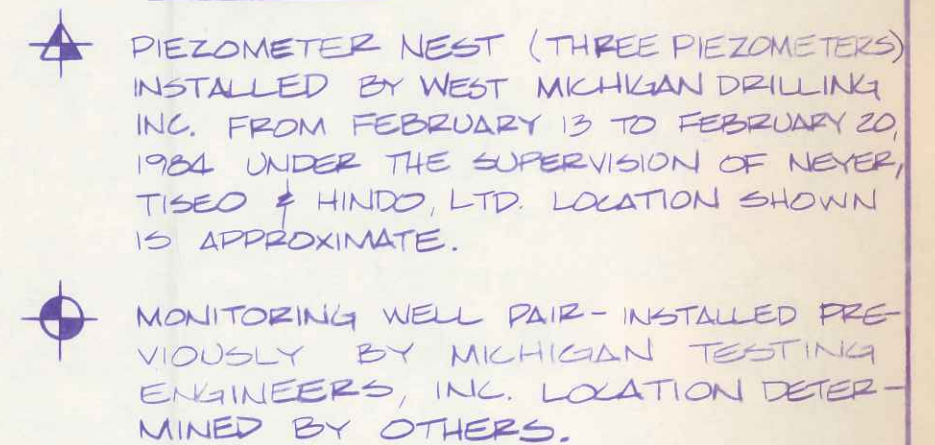 PIEZOMETER NEST (THREE PIEZOMETERS)
INSTALLED BY WEST MICHIGAN DRILLING
INC. FROM FEBRUARY 13 TO FEBRUARY 20,
1984 UNDER THE SUPERVISION OF NEYER,
TISEO & HINDO, LTD. LOCATION SHOWN
IS APPROXIMATE.
MONITORING WELL PAIR - INSTALLED PRE-
VIOUSLY BY MICHIGAN TESTING
ENGINEERS, INC. LOCATION DETER-
MINED BY OTHERS.